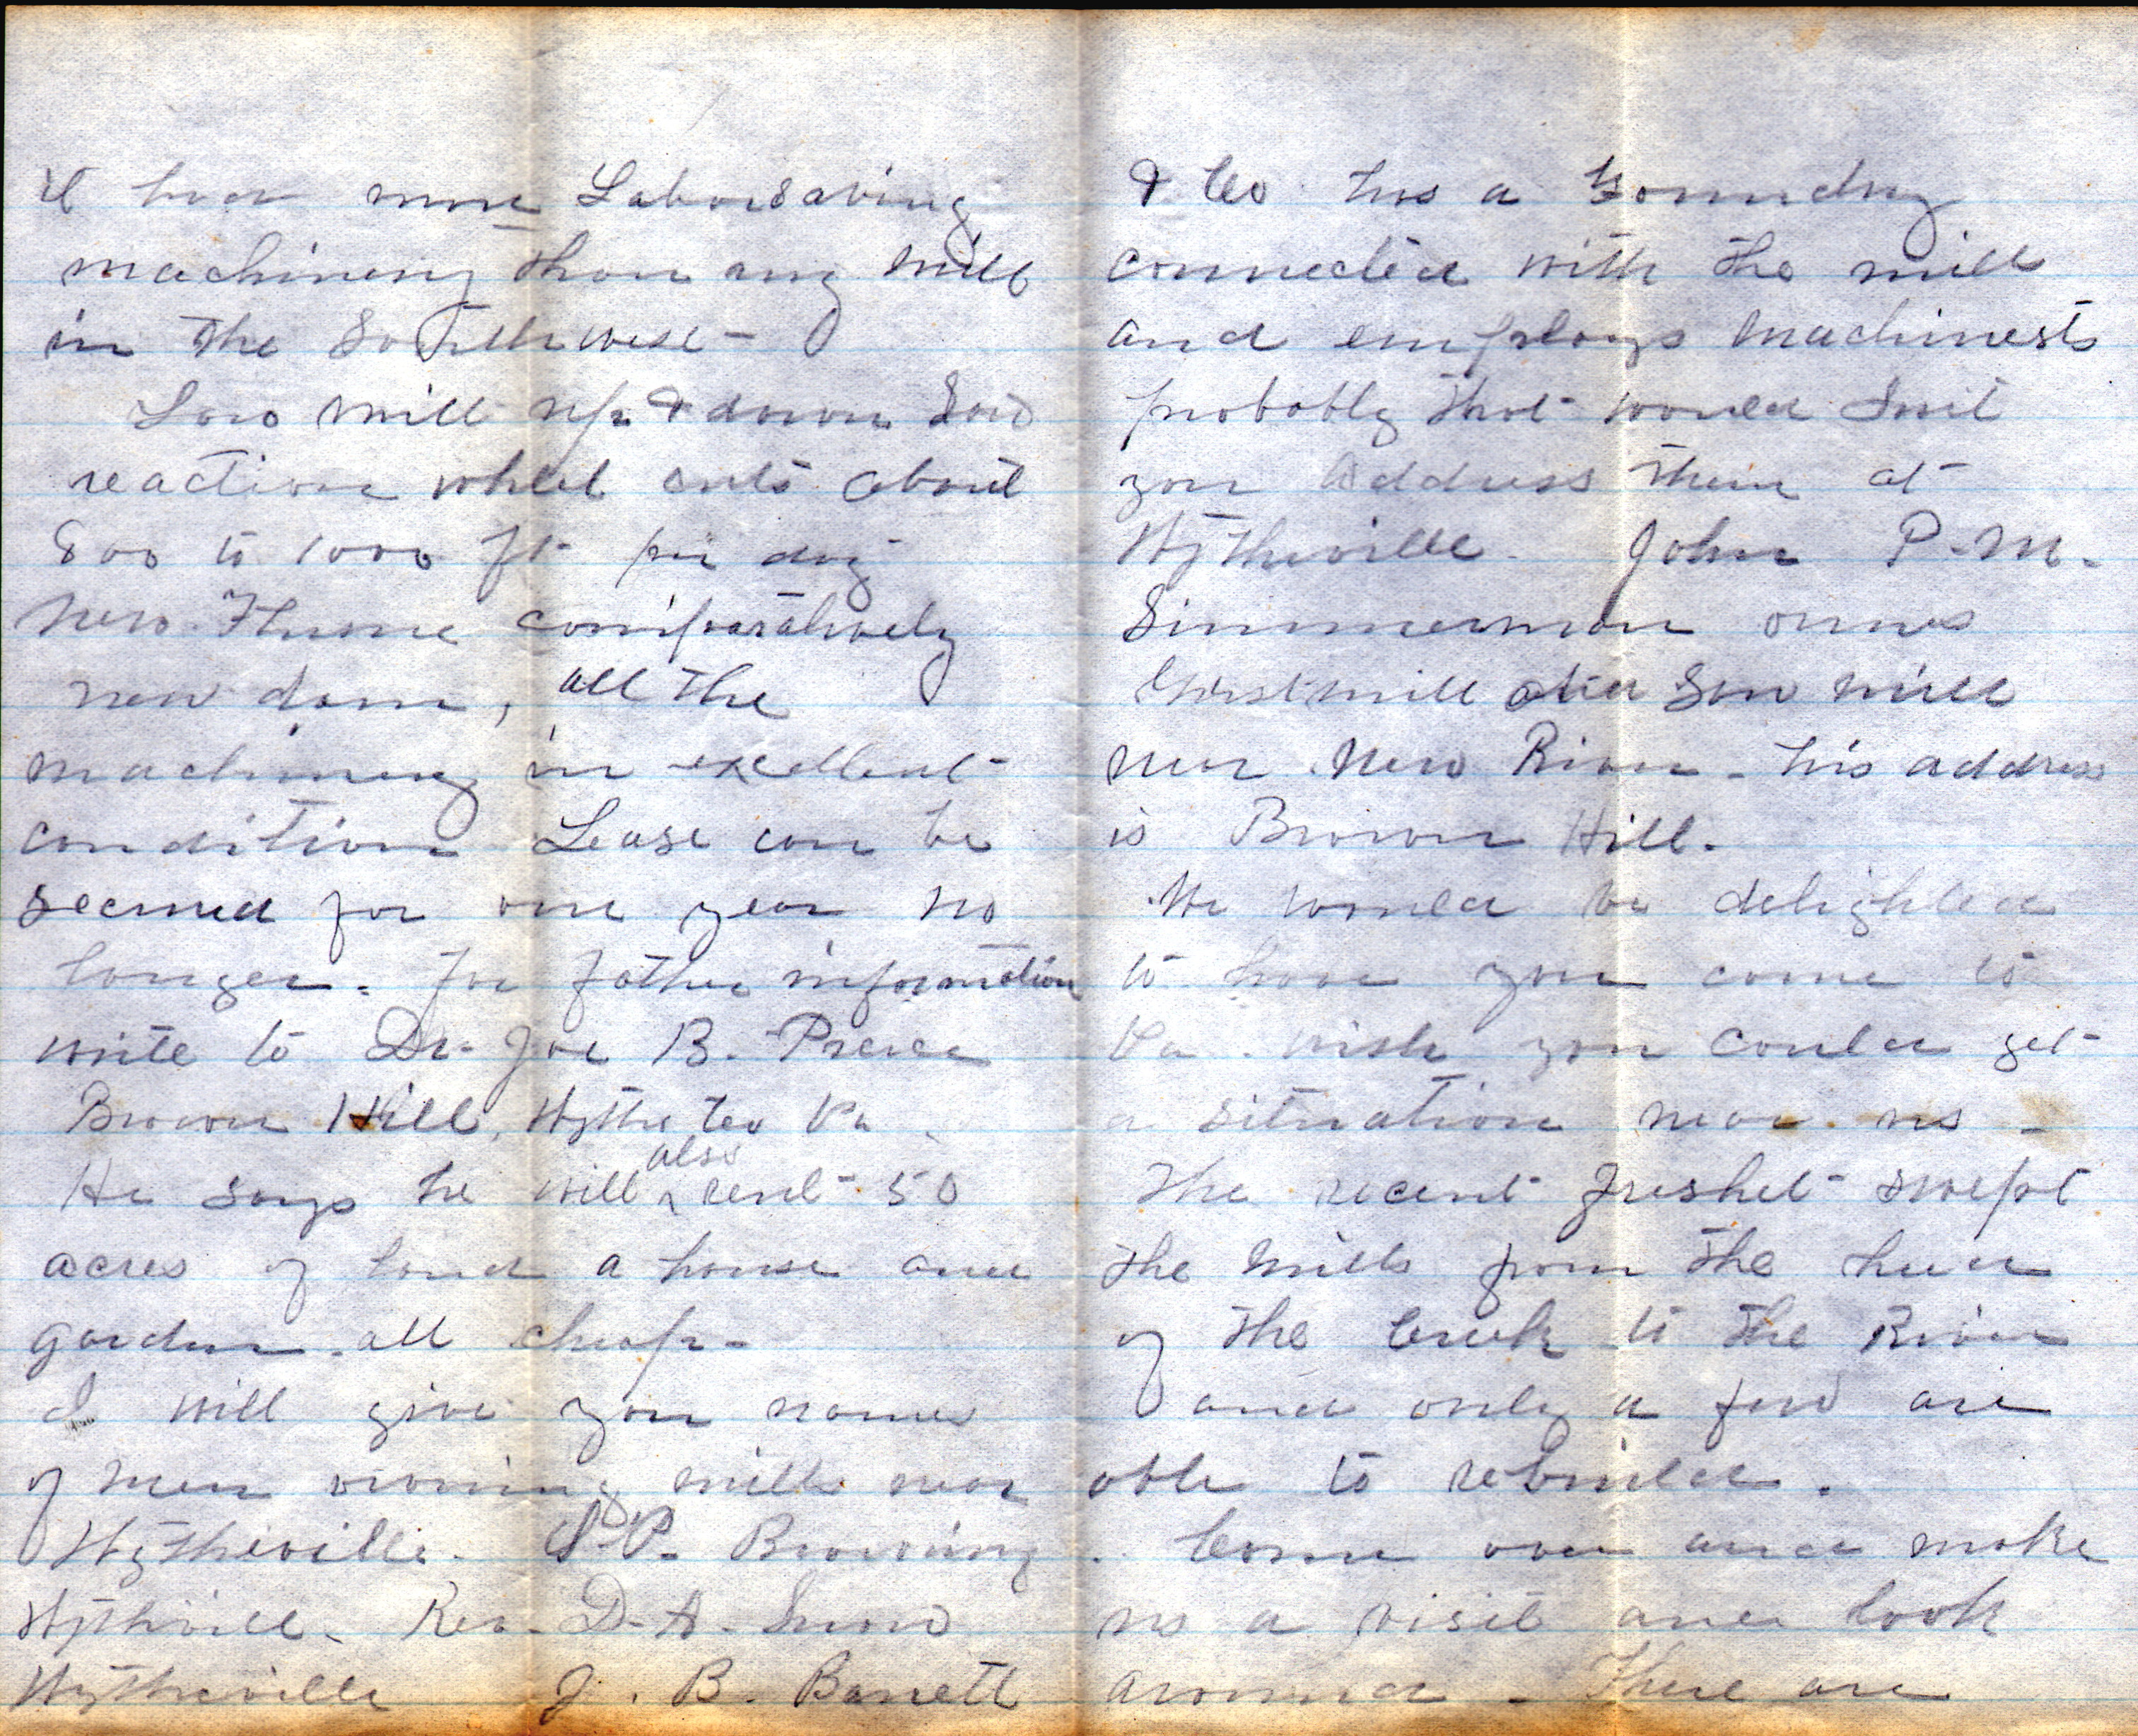 it has more Laborsaving
machinery than any mill
in the Southwest-
Saw mill up & down saw
reaction wheel cuts about
800 to 1000 ft per day
New Flume comparatively
new dam, all the
machinery in excellent
condition Lease can be
secured for one year no
longer. For father information
write to Dr. Joe B. Pierce
Brown Hill, Wythe Co Va.
He says he will also rent 50
acres of land a house and
garden all cheap-
I will give you names
of men owning mills near
Wytheville. S. P. Browning
Wythville. Rev. D. A. Snow
Wytheville J. B. Barrett
& Co has a Foundry
connected with the mill
and employs machinests
probably that would suit
you Address them at
Wytheville. John P. M.
Simmerman owns
Gristmill and Saw mill
near New River. his address
is Brown Hill.
We would be delighted
to have you come to
Va. wish you could get
a situation near us -
The recent freshet swept
the mills from the head
of the Creek to the River
and only a few are
able to rebuild.
Come over and make
us a visit and look
around - There are